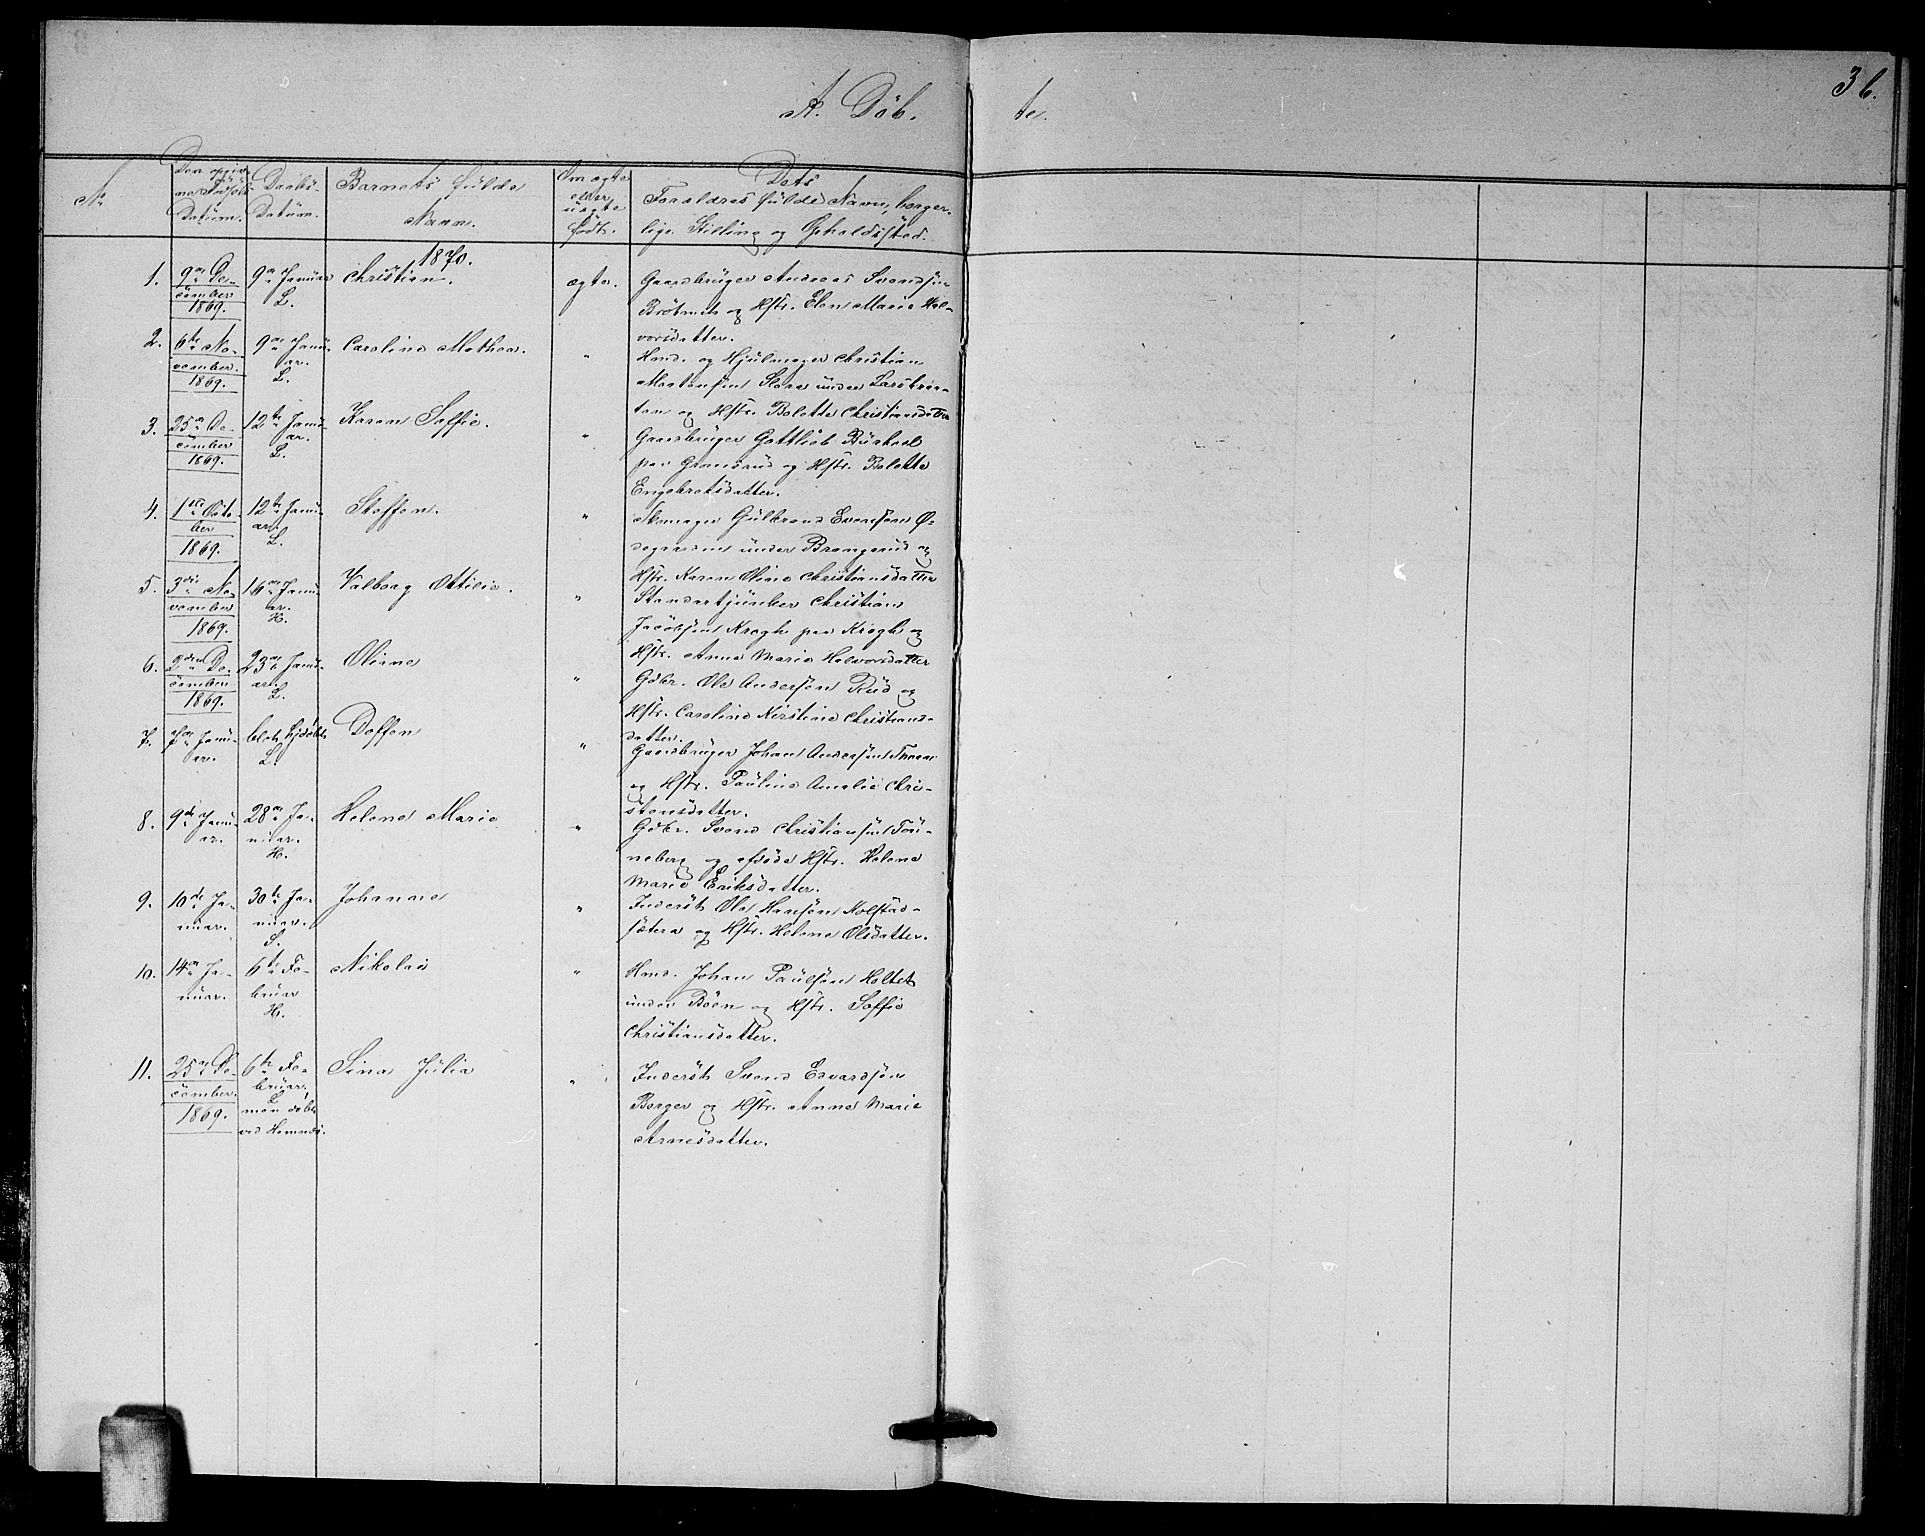 36.
A. Döb. te.
No
Den opgiv
ne Födsels
Datüm.
Daabs-
Datüm.
Barnets fülde
Navn.
Om ægte
eller
üægte
födt.
Dets
Forældres fülde Navn, borger-
lige Stilling og Opholdssted.
1870.
1.
9de De-
cember
1869.
9de Januar
L.
Christian.
ægte.
Gaardbrüger Andreas Svendsen
Bröbmets og Hstr. Elen Marie Hal-
vorsdatter.
2.
6te No-
vember.
1869.
9de Janü-
ar.
L.
Caroline Mathea.
"
Hmd. og Hjülmager Christian
Mortensen under
og Hstr. Bolette Christiansdatter
3.
25de De-
cember
1869.
12te Janü-
ar.
L.
Karen Soffie.
"
Gaardbrüger Gottlieb
paa og Hstr. Bolette
Engebretsdatter.
4.
1ste Octo-
ber
1869.
12te Janü-
ar.
L.
Steffen.
"
Skomager Gülbrand Evensen Ö-
degaarden ünder Brangerud og
Hstr. Karen Oline Christiansdatter
5.
3die No-
vember
1869.
16de Janü-
ar.
H.
Valborg Ottilie.
"
Standartjünker Christian
Jacobsen Krogh paa Krogh og
Hstr. Anne Marie Halvorsdatter
6.
2den De-
cember
1869.
23de Janü-
ar.
L.
Oline
"
Gdbr. Ole Andersen Rüd og
Hstr. Caroline Kirstine Christians-
datter.
7.
7de Janü-
ar.
blot hjdöbt
L.
Doffen
"
Gaardbrüger Johan Andersen
og Hstr. Pauline Amalie Chri-
stensdatter.
8.
9de Janü-
ar.
28de Ja-
nüar.
H.
Helene Marie
"
Gdbr. Svend Christiansen Tou-
neberg og afdöde Hstr. Helene
Marie Eriksdatter.
9.
10de Ja-
nüar.
30te Ja-
nüar.
S.
Johanne
"
Inderst Ole Hansen Kolstad-
sætera og Hstr. Helene Olsdatter.
10.
14de Ja-
nüar.
6te Fe-
brüar
H.
Nikolai
"
Hmd. Johan Paülsen Holtet
ünder Böen og Hstr. Soffie
Christiansdatter.
11.
25de De-
cember.
1869.
6te Fe-
brüar,
L
men döbt
ved Hemnæs.
Sina Jülia
"
Inderst Svend Edvardsen
Berger og Hstr. Anne Marie
Arnesdatter.